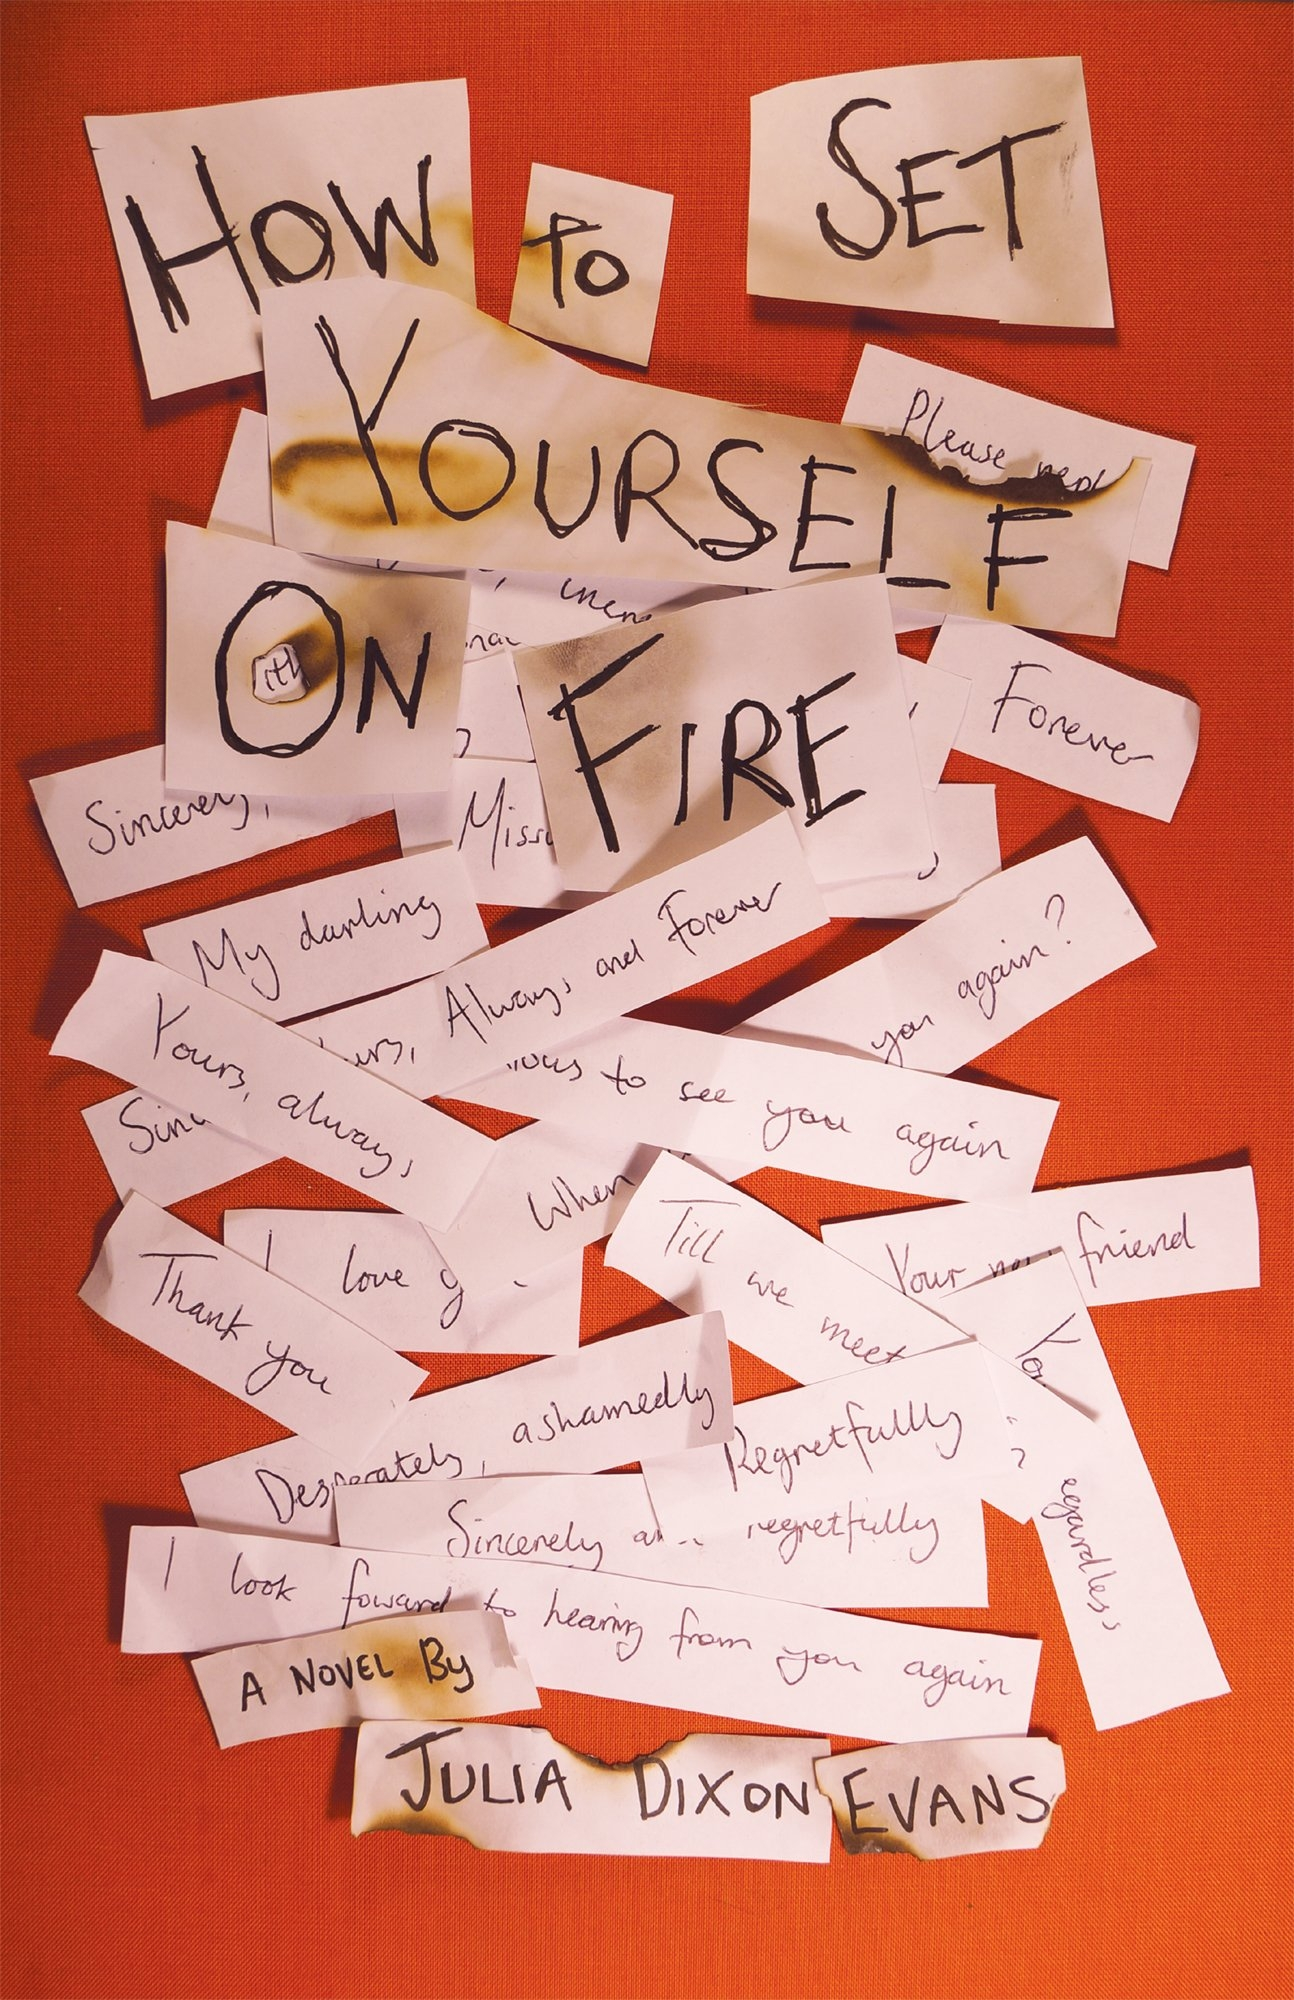 HOW TO SET
YOURSELF
Please
ON FIRE
ith
Forever
Sincerely,
My darling
Always, and Forever
you again?
Yours, always,
to see you again
When
Till we meet
Your friend
I love
Thank you
Desperately, ashamedly
Regretfully
Sincerely regretfully
I look foward to hearing from you again
A NOVEL By
JULIA DIXON EVANS